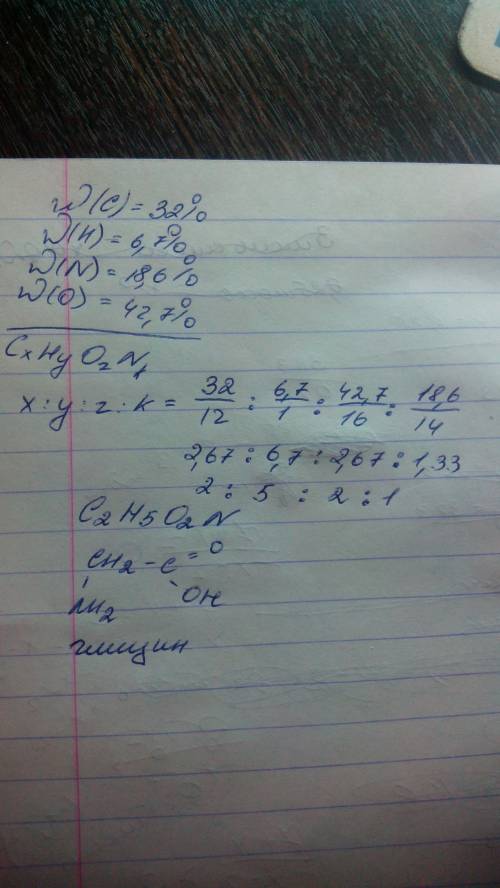 W(C) = 32%
W(H) = 6,7%
W(N) = 18,6%
W(O) = 42,7%
CxHyOzNk
x : y : z : k = 32/12 : 6,7/1 : 42,7/16 : 18,6/14
2,67 : 6,7 : 2,67 : 1,33
2 : 5 : 2 : 1
C2H5O2N
CH2 - C = O
NH2 OH
глицин